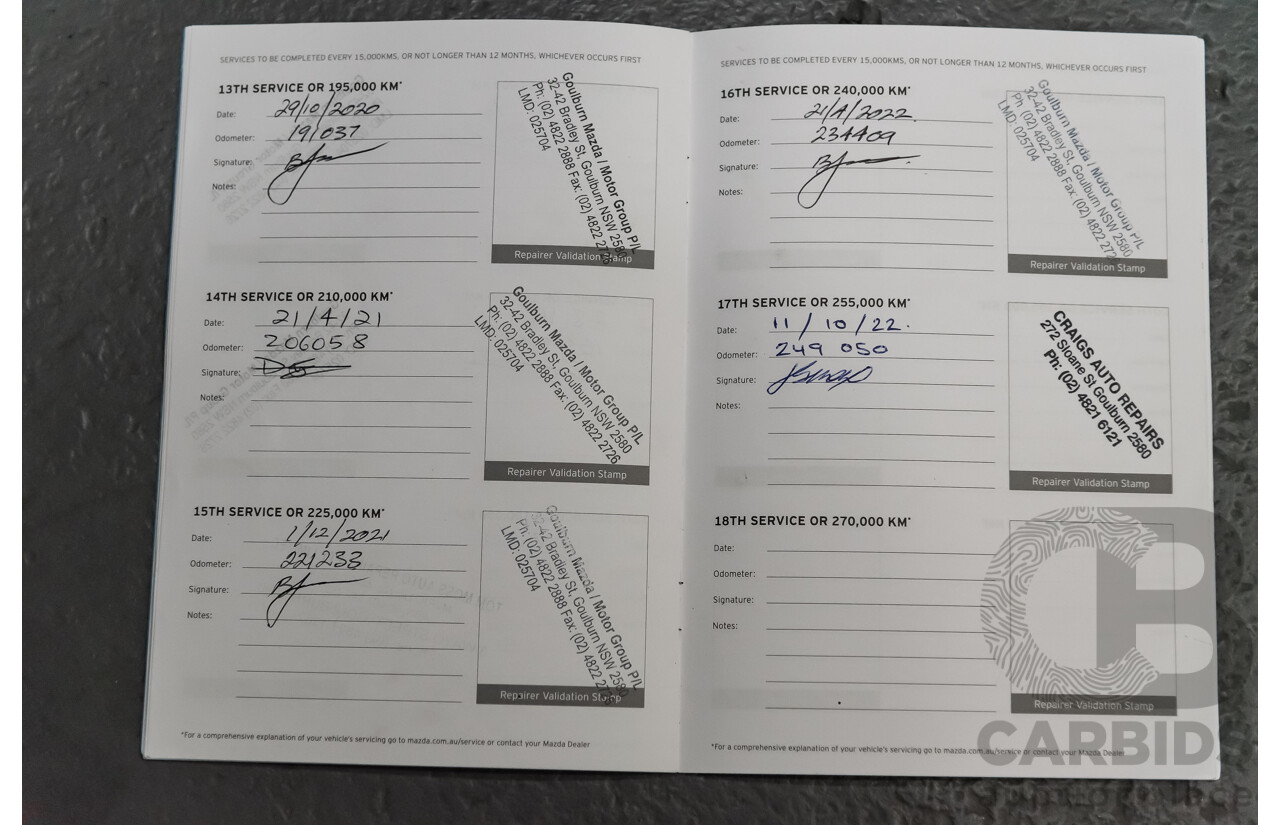 SERVICES TO BE COMPLETED EVERY 15,000KMS, OR NOT LONGER THAN 12 MONTHS, WHICHEVER OCCURS FIRST
13TH SERVICE OR 195,000 KM*
Date: 29/10/2020
Odometer: 191037
Signature:
Notes:
Goulburn Mazda / Motor Group P/L
32-42 Bradley St, Goulburn NSW 2580
Ph: (02) 4822 2888 Fax: (02) 4822 2726
LMD: 025704
Repairer Validation Stamp
14TH SERVICE OR 210,000 KM*
Date: 21/4/21
Odometer: 206058
Signature:
Notes:
Goulburn Mazda / Motor Group P/L
32-42 Bradley St, Goulburn NSW 2580
Ph: (02) 4822 2888 Fax: (02) 4822 2726
LMD: 025704
Repairer Validation Stamp
15TH SERVICE OR 225,000 KM*
Date: 1/12/2021
Odometer: 221233
Signature:
Notes:
Goulburn Mazda / Motor Group P/L
32-42 Bradley St, Goulburn NSW 2580
Ph: (02) 4822 2888 Fax: (02) 4822
LMD: 025704
Repairer Validation Stamp
*For a comprehensive explanation of your vehicle's servicing go to mazda.com.au/service or contact your Mazda Dealer
SERVICES TO BE COMPLETED EVERY 15,000KMS, OR NOT LONGER THAN 12 MONTHS, WHICHEVER OCCURS FIRST
16TH SERVICE OR 240,000 KM*
Date: 21/4/2022
Odometer: 234409
Signature:
Notes:
Goulburn Mazda / Motor Group P/L
32-42 Bradley St, Goulburn NSW 2580
Ph: (02) 4822 2888 Fax: (02) 4822 272
LMD: 025704
Repairer Validation Stamp
17TH SERVICE OR 255,000 KM*
Date: 11/10/22.
Odometer: 249 050
Signature:
Notes:
CRAIGS AUTO REPAIRS
272 Sloane St Goulburn 2580
Ph: (02) 4821 6121
Repairer Validation Stamp
18TH SERVICE OR 270,000 KM*
Date:
Odometer:
Signature:
Notes:
Repairer Validation Stamp
*For a comprehensive explanation of your vehicle's servicing go to mazda.com.au/service or contact your Mazda Dealer
CARBIDS